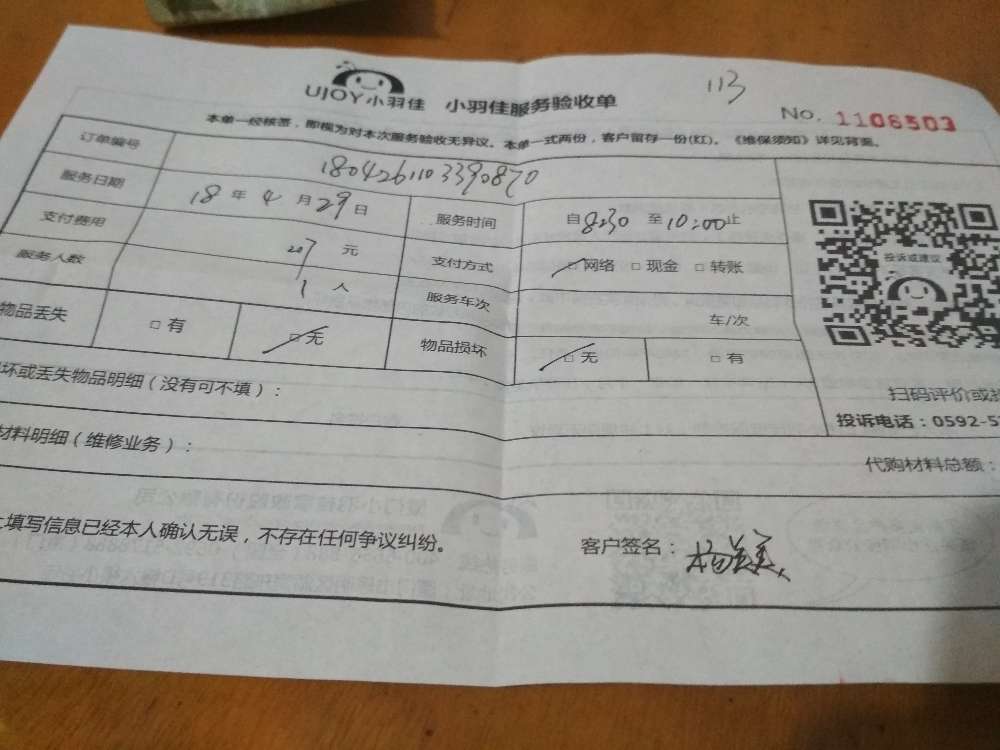 113
UJOY小羽佳 小羽佳服务验收单
No. 1106503
本单一经核签，即视为对本次服务验收无异议。本单一式两份，客户留存一份(红)。《维保须知》详见背面。
订单编号 1804261103390870
服务日期 18 年 4 月 29 日 服务时间 自 8:30 至 10:00 止
支付费用 207 元 支付方式 □ 网络 □ 现金 □ 转账
服务人数 1 人 服务车次 车/次
物品丢失 □ 有 □ 无 物品损坏 □ 无 □ 有
投诉或建议
坏或丢失物品明细（没有可不填）：
扫码评价或投
投诉电话：0592-5
材料明细（维修业务）：
代购材料总额：
上填写信息已经本人确认无误，不存在任何争议纠纷。
客户签名：杨